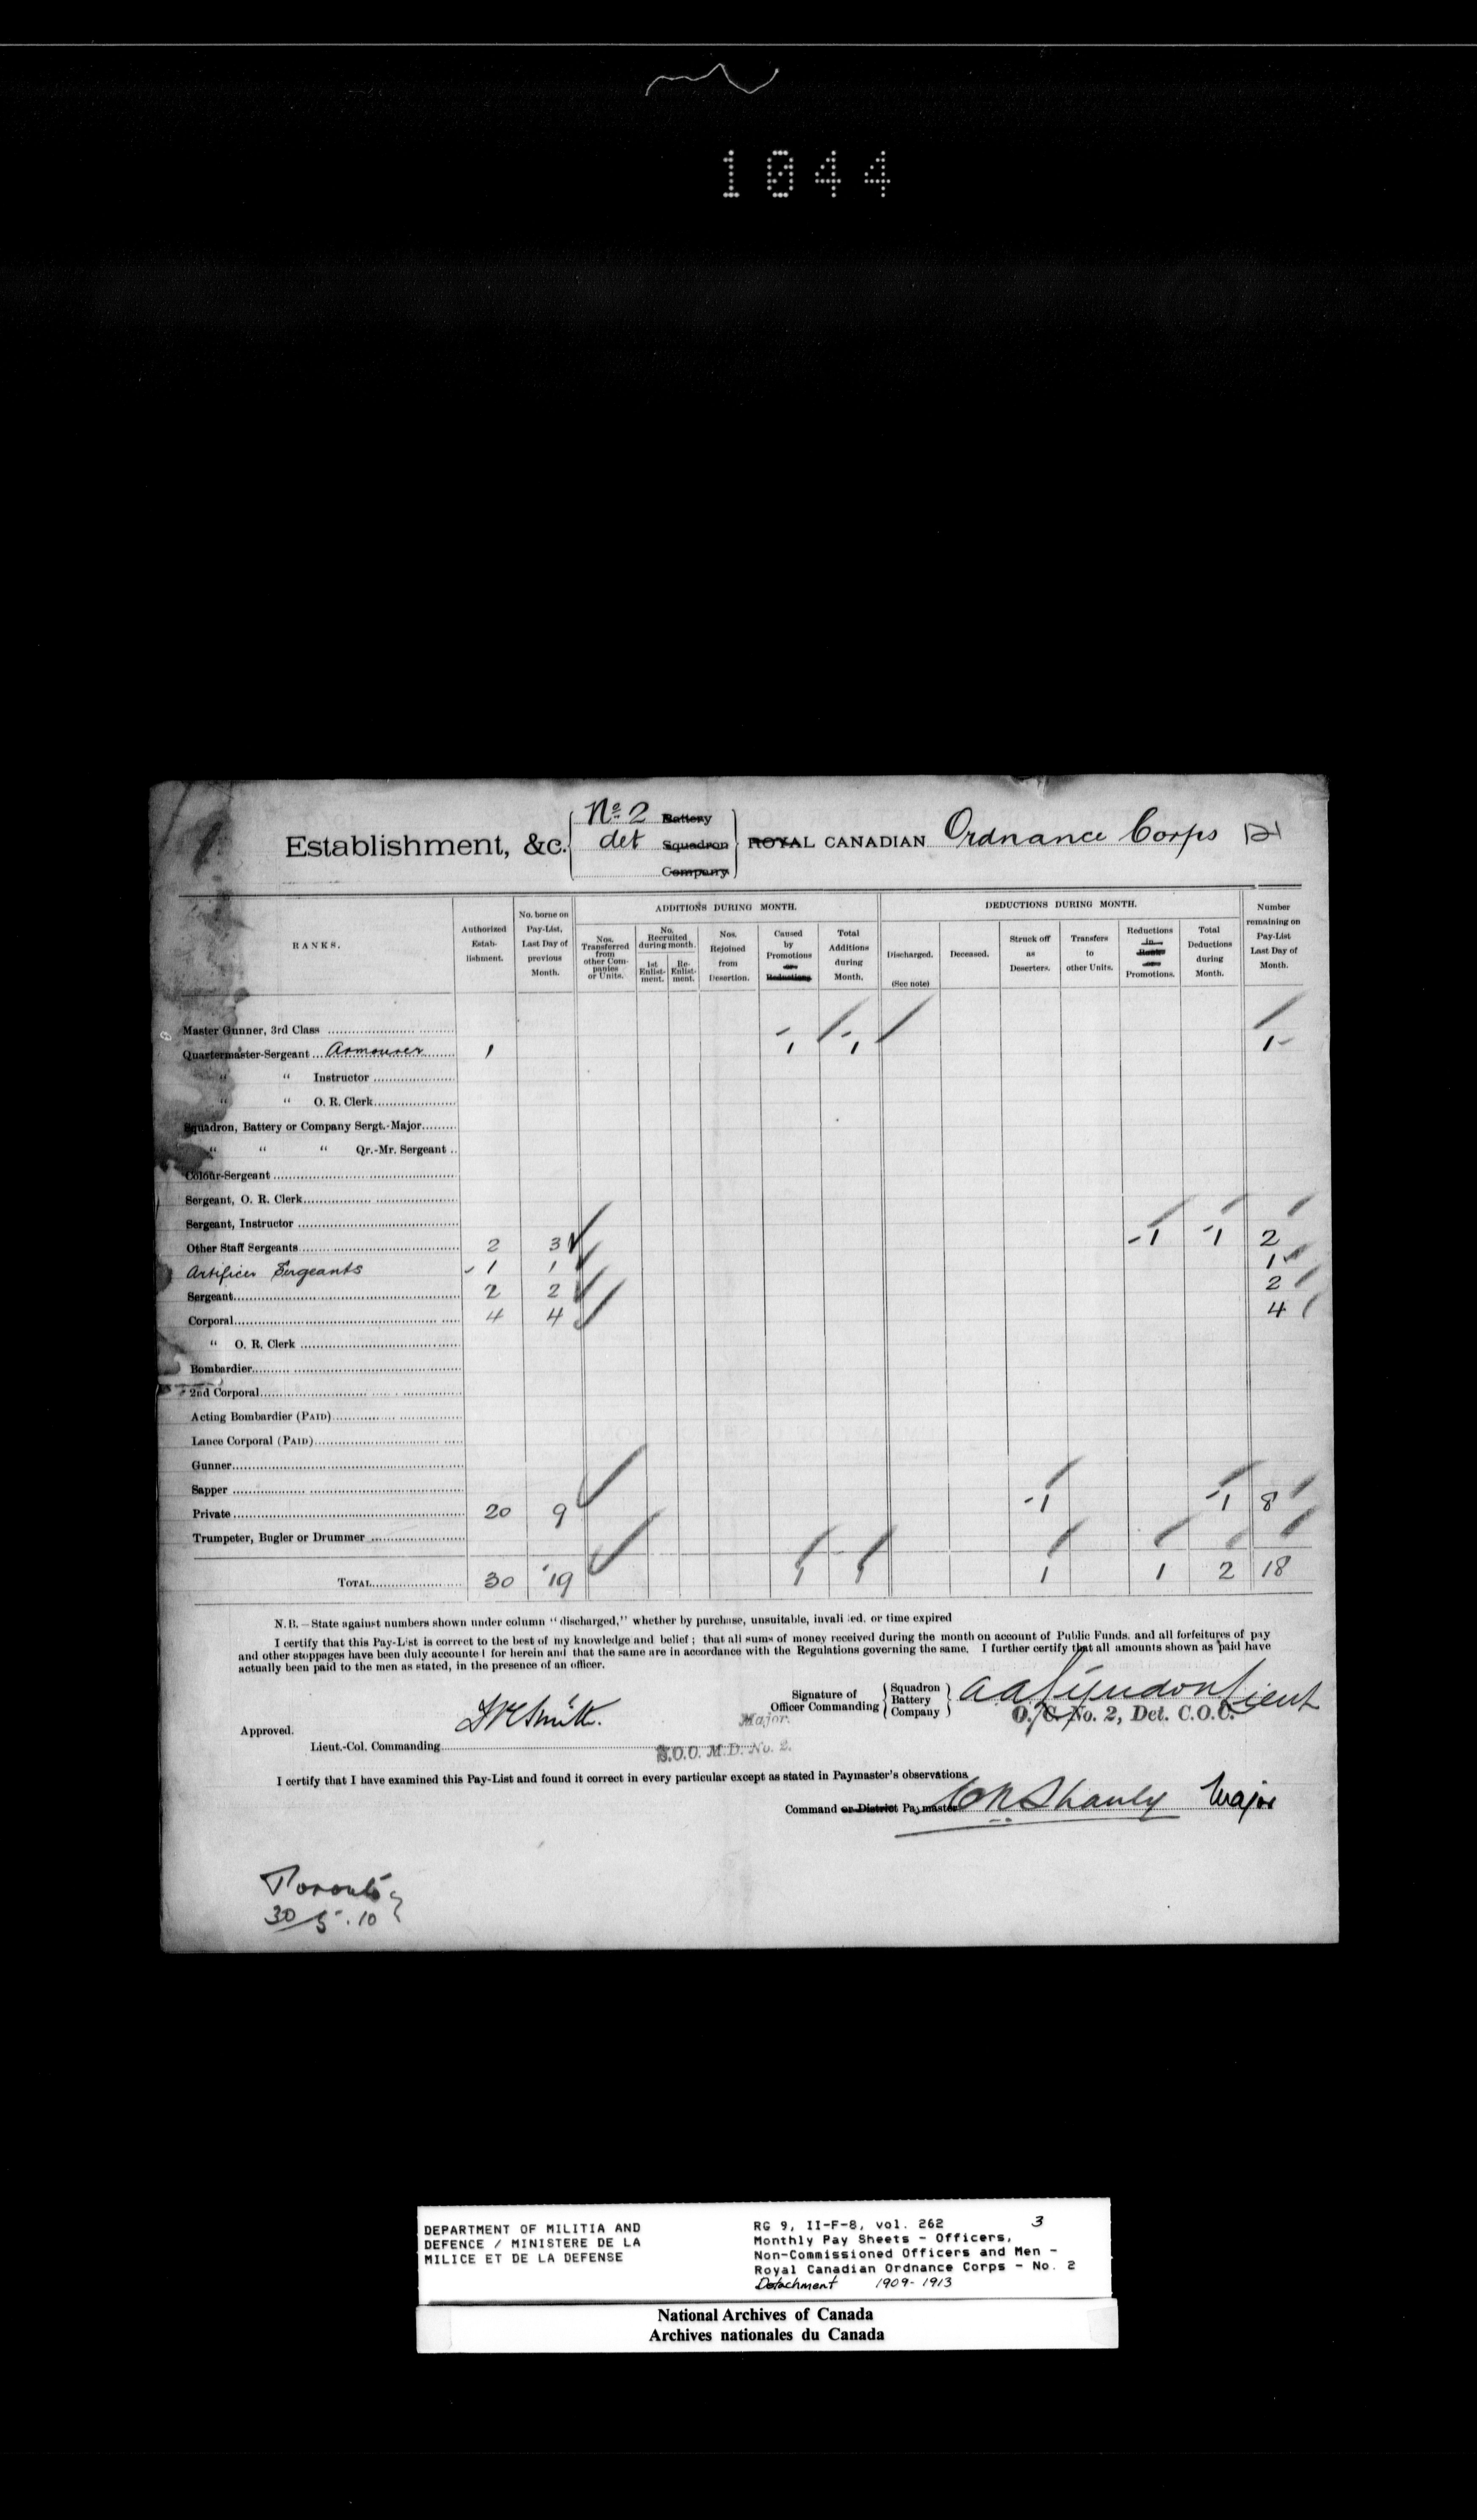 1044
Establishment, &c. No 2 Battery
det Squadron
Company
ROYAL CANADIAN Ordnance Corps
RANKS. Authorized Establishment. No. borne on Pay-List, Last Day of previous Month. ADDITIONS DURING MONTH. DEDUCTIONS DURING MONTH. Number remaining on Pay-List Last Day of Month.
Nos. Transferred from other Companies or Units. No. Recruited during month. 1st Enlistment. Re-Enlistment. Nos. Rejoined from Desertion. Caused by Promotions or Reductions Total Additions during Month. Discharged. (See note) Deceased. Struck off as Deserters. Transfers to other Units. Reductions in Ranks or Promotions. Total Deductions during Month.
Master Gunner, 3rd Class
Quartermaster-Sergeant Armourer 1 1 1 1
" " Instructor
" " O. R. Clerk
Squadron, Battery or Company Sergt.-Major
" " " Qr.-Mr. Sergeant
Colour-Sergeant
Sergeant, O. R. Clerk
Sergeant, Instructor
Other Staff Sergeants 2 3 1 1 2
Artificer Sergeants 1 1 1
Sergeant 2 2 2
Corporal 4 4 4
" O. R. Clerk
Bombardier
2nd Corporal
Acting Bombardier (PAID)
Lance Corporal (PAID)
Gunner
Sapper
Private 20 9 1 1 8
Trumpeter, Bugler or Drummer
TOTAL 30 19 1 1 1 1 2 18
N.B.—State against numbers shown under column "discharged," whether by purchase, unsuitable, invalided, or time expired
I certify that this Pay-List is correct to the best of my knowledge and belief; that all sums of money received during the month on account of Public Funds, and all forfeitures of pay
and other stoppages have been duly accounted for herein and that the same are in accordance with the Regulations governing the same. I further certify that all amounts shown as paid have
actually been paid to the men as stated, in the presence of an officer.
Signature of Officer Commanding Squadron Battery Company Lieut
O. C. No. 2, Det. C.O.C.
Approved.
Smith.
Major.
Lieut.-Col. Commanding
S.O.O. M.D. No. 2.
I certify that I have examined this Pay-List and found it correct in every particular except as stated in Paymaster's observations
Command or District Paymaster Shanly Major
Toronto
30 5.10
DEPARTMENT OF MILITIA AND
DEFENCE / MINISTERE DE LA
MILICE ET DE LA DEFENSE
RG 9, II-F-8, vol. 262 3
Monthly Pay Sheets - Officers,
Non-Commissioned Officers and Men -
Royal Canadian Ordnance Corps - No. 2
Detachment 1909-1913
National Archives of Canada
Archives nationales du Canada